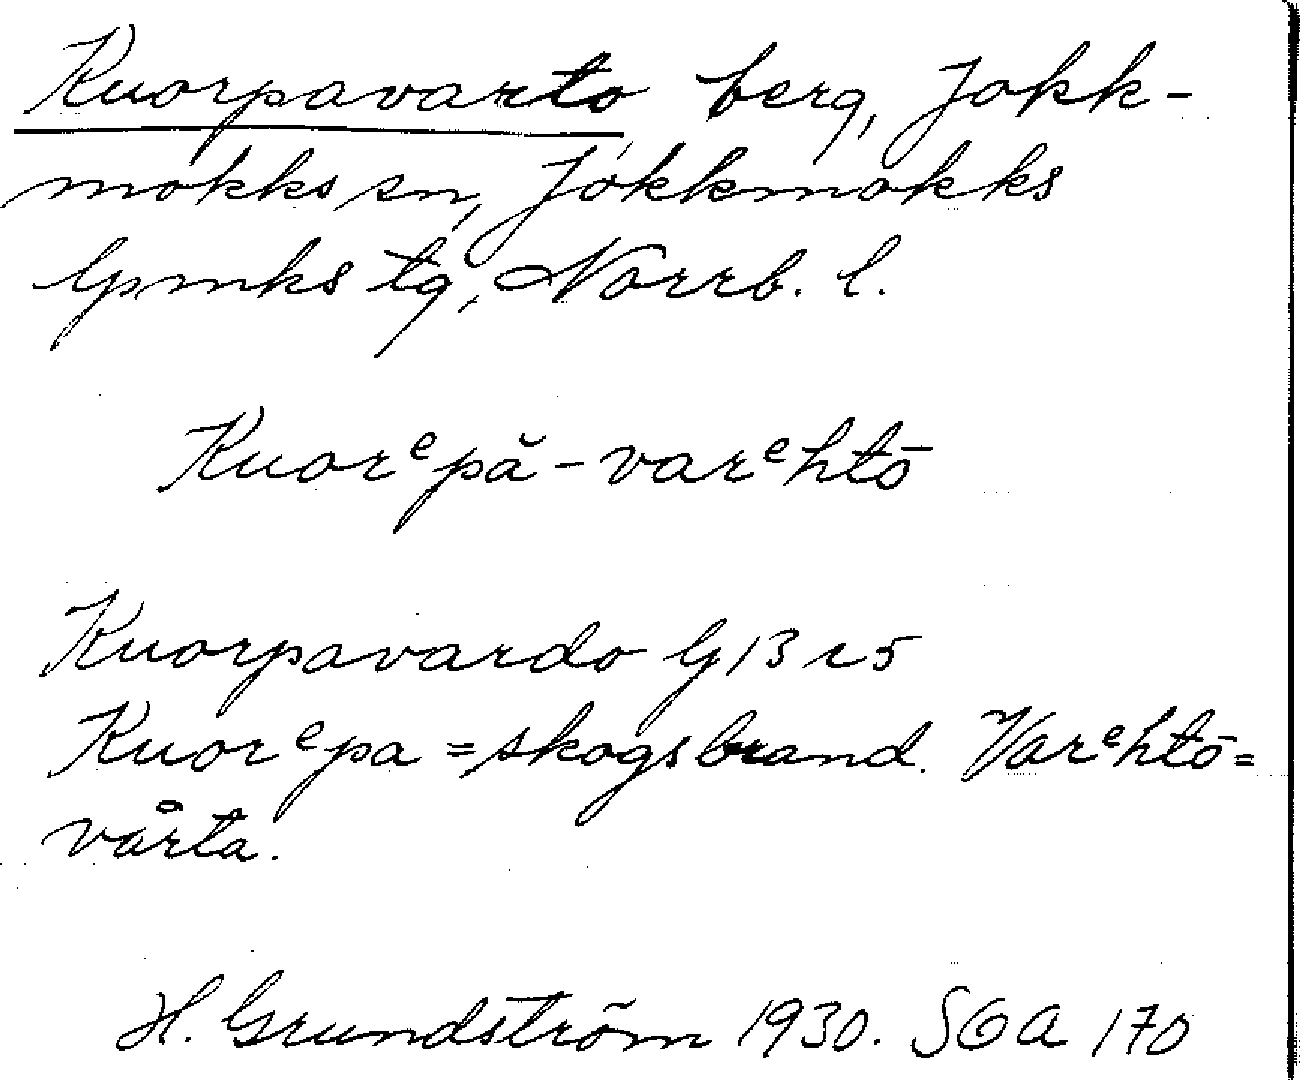 Kuorpavarto, berg, Jokk-
mokks sn, Jokkmokks
lpmks tg, Norrb. l.
Kuorᵉpă-varᵉhtō
Kuorpavardo G13 r5
Kuorᵉpa = skogsbrand. Varᵉhtō =
vårta.
H. Grundström 1930. SOA 170